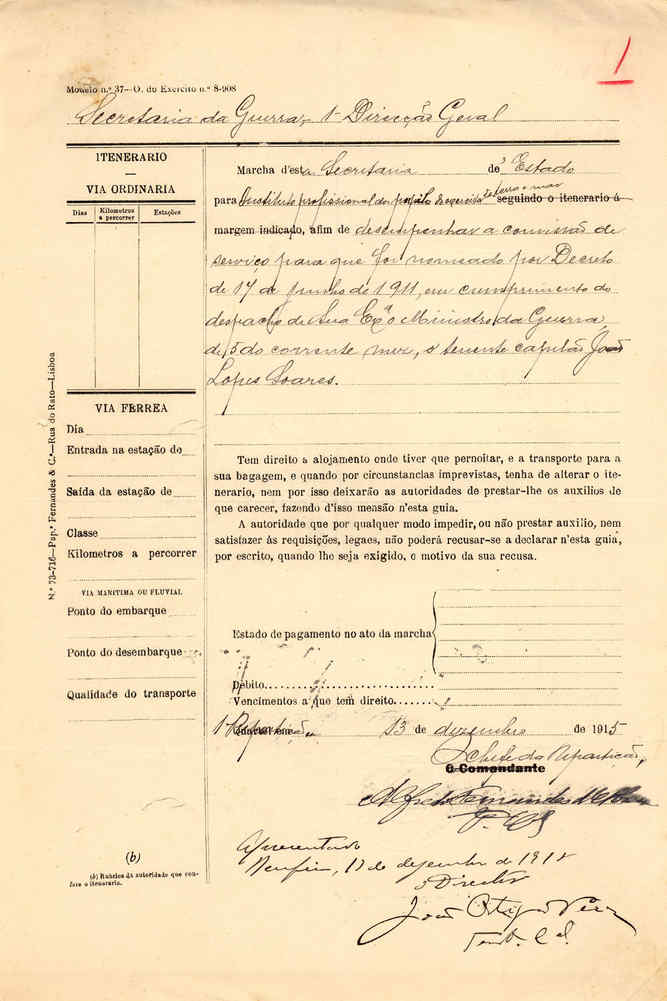 1
Modelo n.º 37—O. do Exercito n.º 8-908
Secretaria da Guerra, 1ª Direcção Geral
ITENERARIO
—
VIA ORDINARIA
Dias
Kilometros a percorrer
Estações
Marcha d'esta Secretaria de Estado
para Instituto profissional dos pupilos do exercito de terra e mar seguindo o itenerario á
margem indicado, afim de desempenhar a comissão de
serviço para que foi nomeado por Decreto
de 17 de Junho de 1911, em cumprimento do
despacho de Sua Exª o Ministro da Guerra,
de 5 do corrente mez, o tenente capitão João
Lopes Soares.
VIA FERREA
Dia
Entrada na estação de
Saída da estação de
Classe
Kilometros a percorrer
VIA MARITIMA OU FLUVIAL
Ponto do embarque
Ponto do desembarque
Qualidade do transporte
Tem direito a alojamento onde tiver que pernoitar, e a transporte para a
sua bagagem, e quando por circunstancias imprevistas, tenha de alterar o ite-
nerario, nem por isso deixarão as autoridades de prestar-lhe os auxilios de
que carecer, fazendo d'isso mensão n'esta guia.
A autoridade que por qualquer modo impedir, ou não prestar auxilio, nem
satisfazer ás requisições, legaes, não poderá recusar-se a declarar n'esta guia,
por escrito, quando lhe seja exigido, o motivo da sua recusa.
Estado de pagamento no ato da marcha
Débito
Vencimentos a que tem direito
1ª Repartição 13 de dezembro de 1915
O chefe da Repartição,
O Comandante
Alfredo Fernandes
Apresentado
13 de dezembro de 191
O Director
João
Tent. C.el
(b)
(b) Rubrica da autoridade que con-
fere o itenerario.
N.º 73-716—Pap.ª Fernandes & C.ª—Rua do Rato—Lisboa